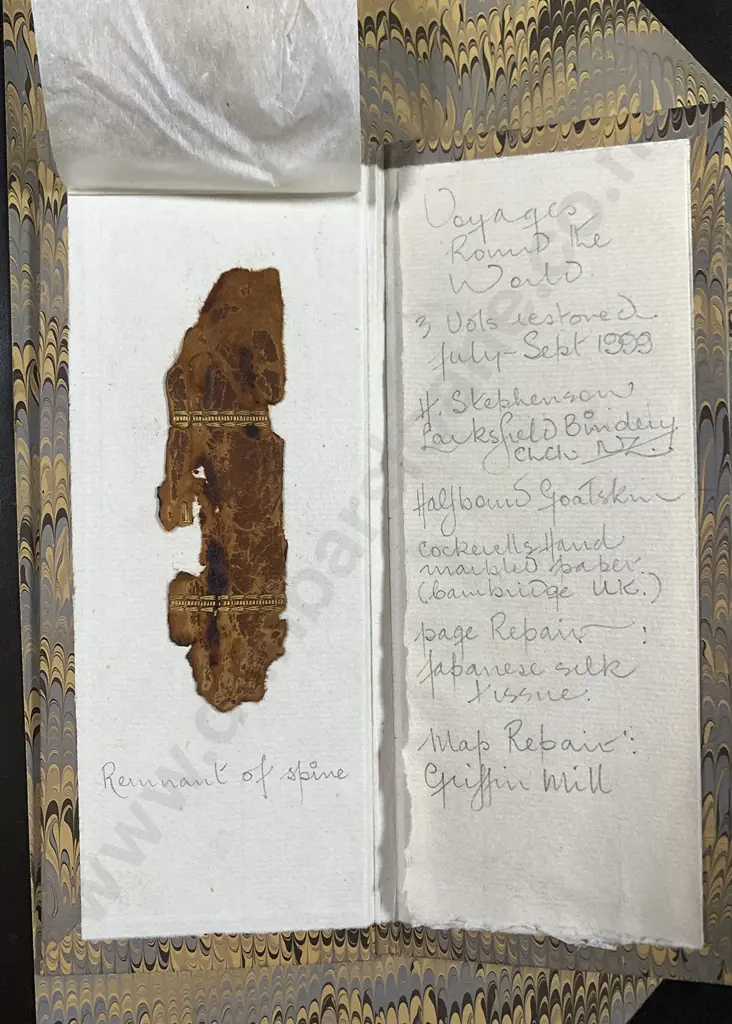 Remnant of spine
Voyages
Round the
World
3 Vols restored
July-Sept 1999
H. Stephenson
Larksfield Bindery
ChCh NZ.
Halfbound Goatskin
cockerells Hand
marbled paper.
(Cambridge UK.)
page Repair :
Japanese silk
tissue.
Map Repair :
Griffin Mill